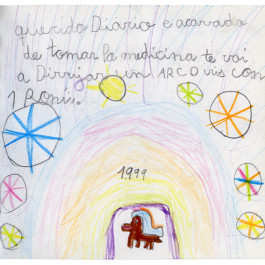 querido Diario e acavado
de tomar la medicina te voi
a Dirujar un ARCO vis con
1 Ponis.
1999